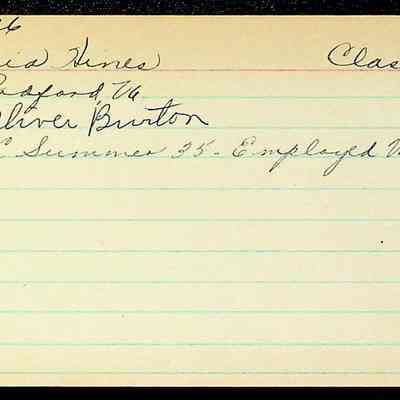 26
ia Hines Clas
Radford, Va
Oliver Burton
C Summer 35 - Employed V